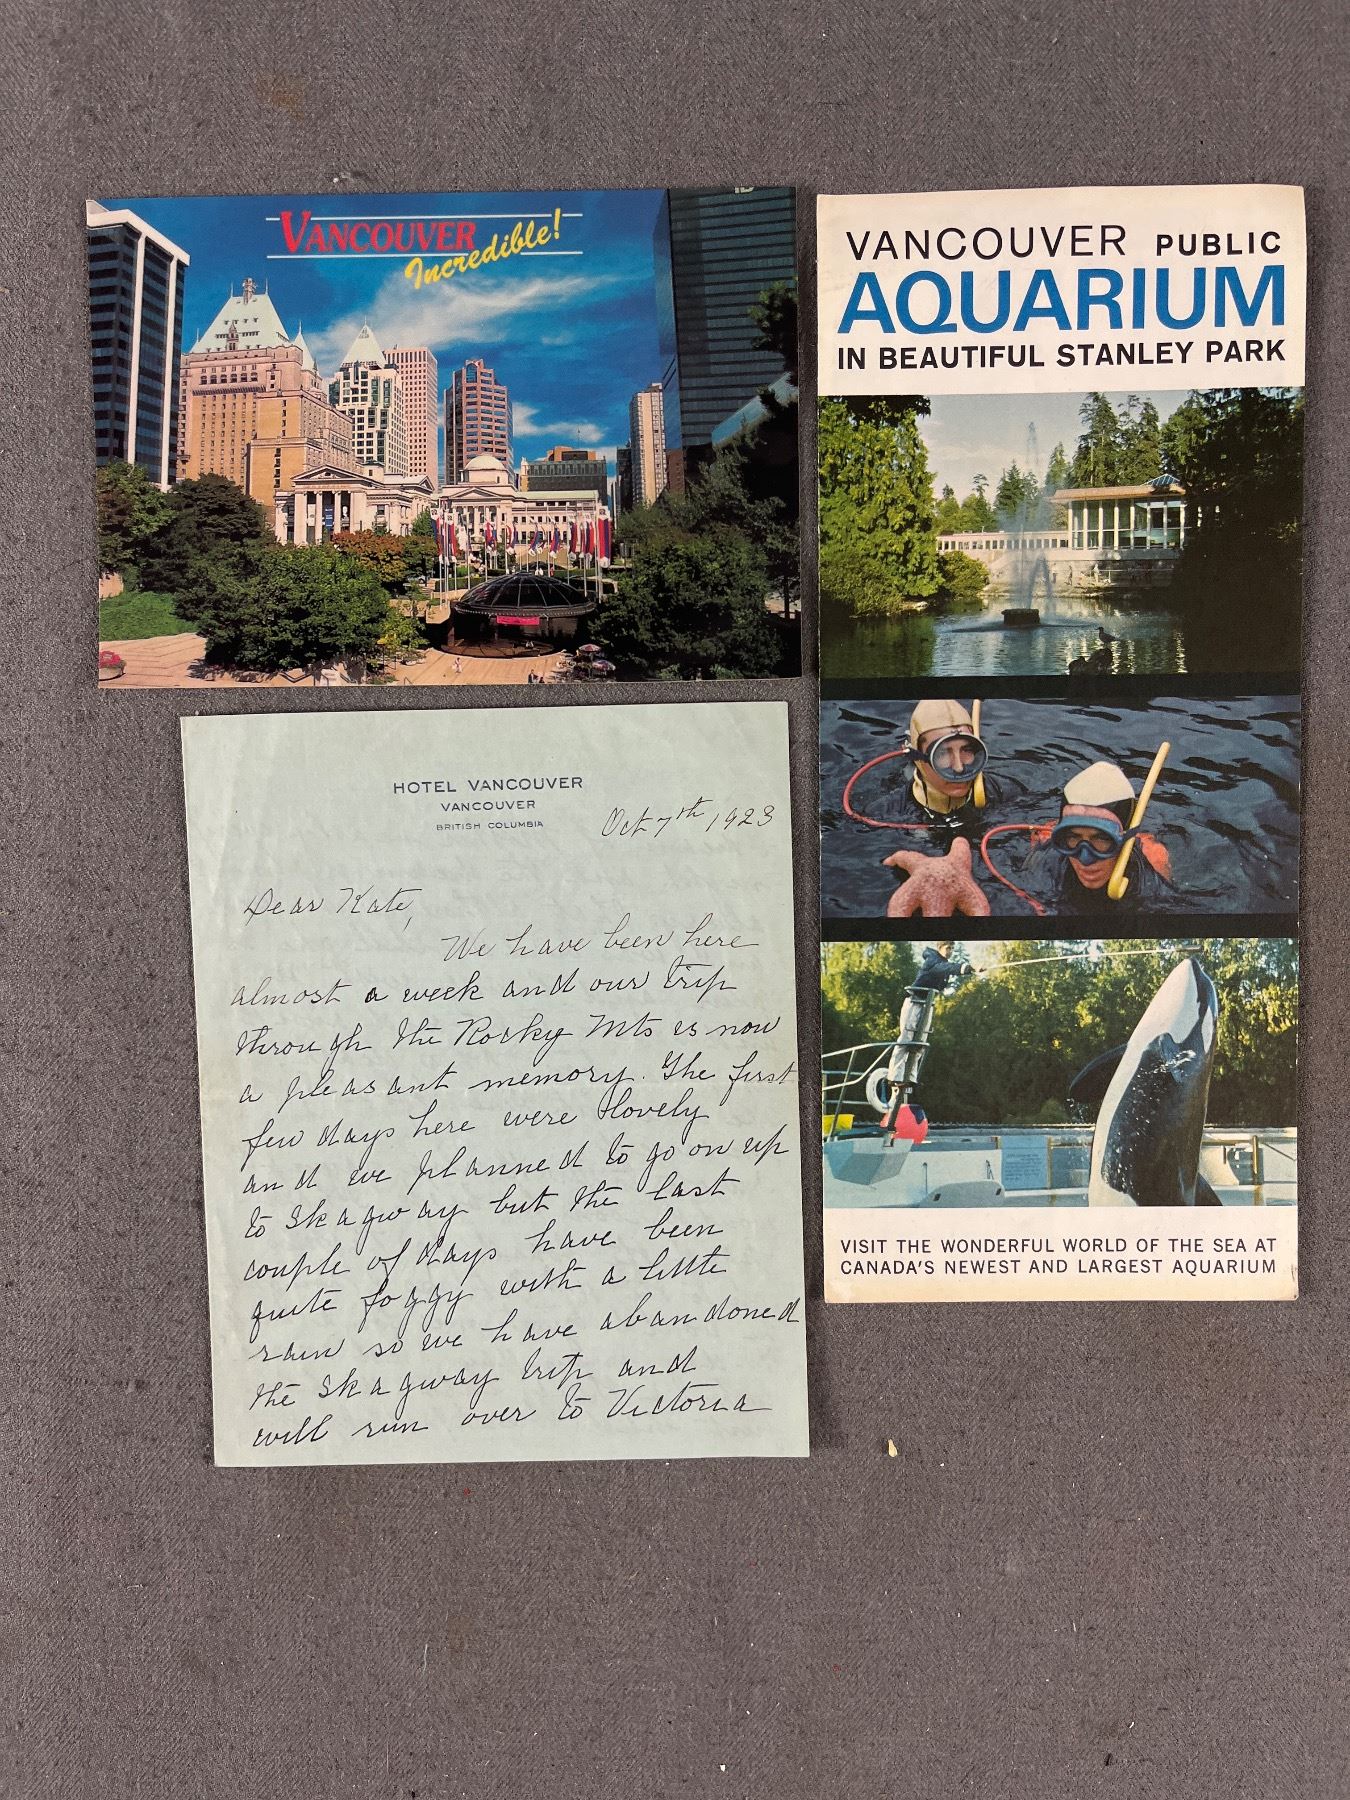 VANCOUVER
Incredible!
VANCOUVER PUBLIC
AQUARIUM
IN BEAUTIFUL STANLEY PARK
VISIT THE WONDERFUL WORLD OF THE SEA AT
CANADA'S NEWEST AND LARGEST AQUARIUM
HOTEL VANCOUVER
VANCOUVER
BRITISH COLUMBIA
Oct 7th 1923
Dear Kate,
We have been here
almost a week and our trip
through the Rocky Mts is now
a pleasant memory. The first
few days here were lovely
and we planned to go on up
to Skagway but the last
couple of days have been
quite foggy with a little
rain so we have abandoned
the Skagway trip and
will run over to Victoria